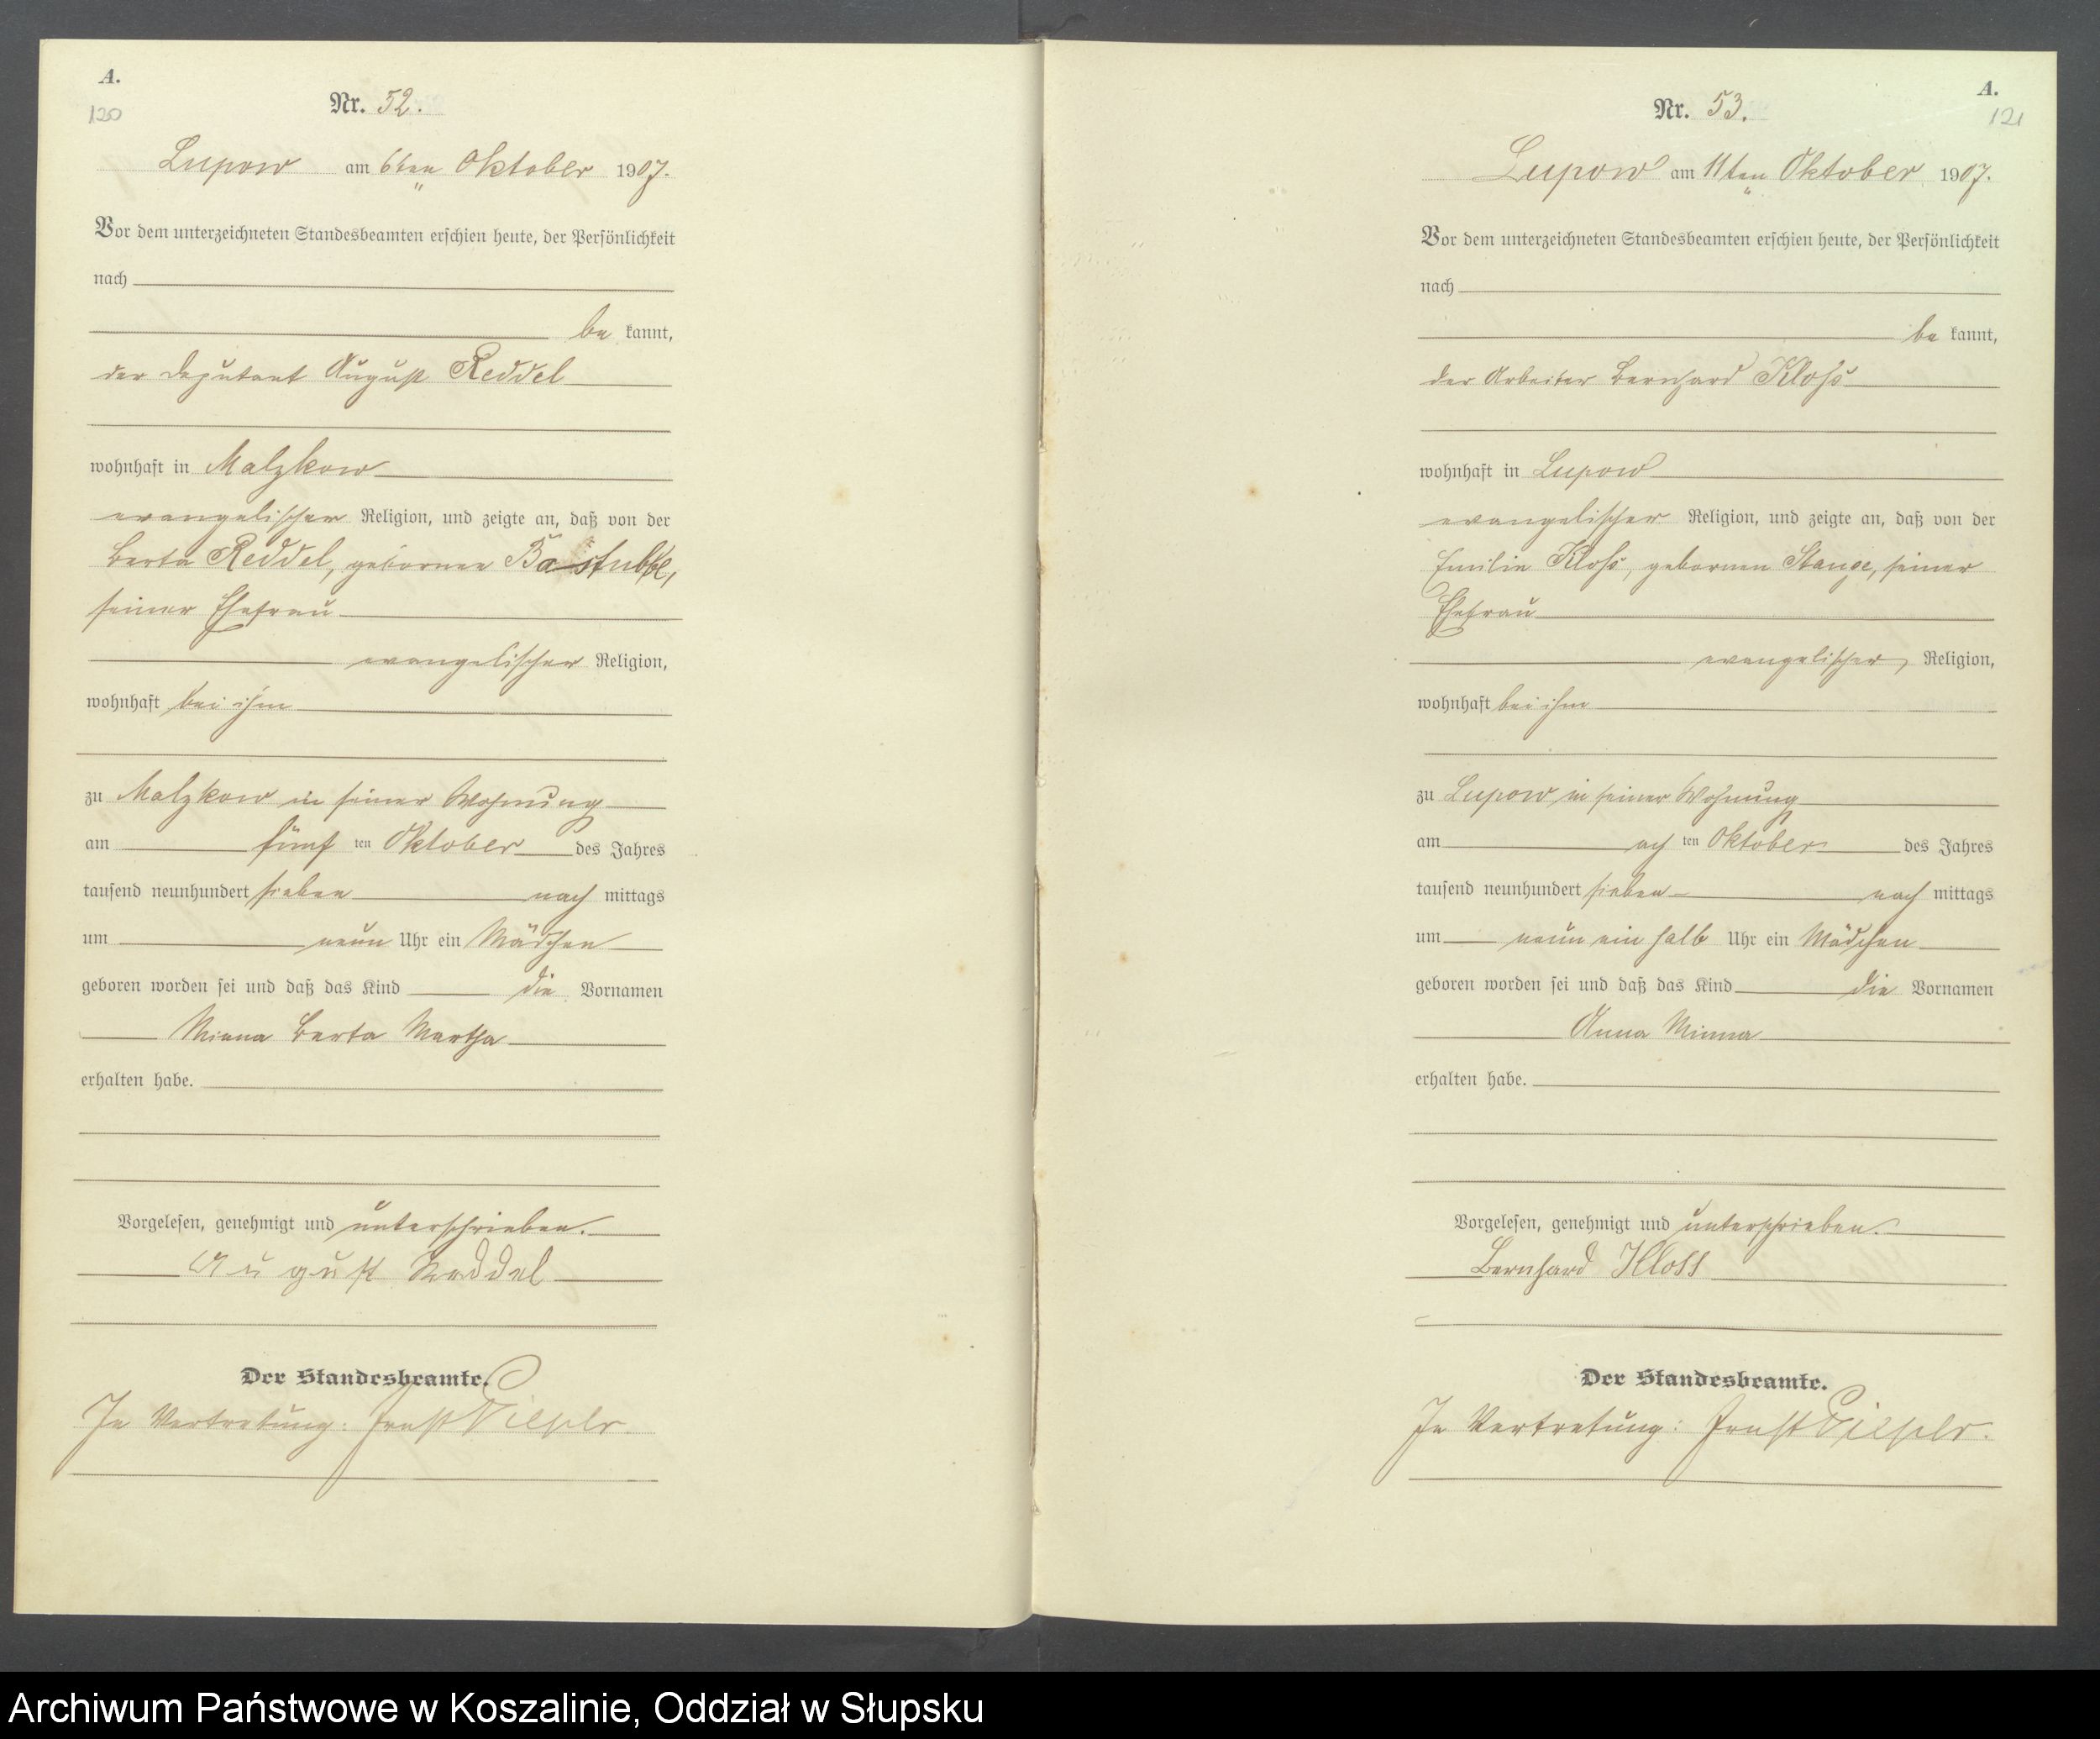 A.
120
Nr. 52.
Lupow am 6ten Oktober 1907.
Vor dem unterzeichneten Standesbeamten erschien heute, der Persönlichkeit
nach
be kannt,
der Deputant August Reddel
wohnhaft in Malzkow
evangelischer Religion, und zeigte an, daß von der
Berta Reddel, geborenen
seiner Ehefrau
evangelischer Religion,
wohnhaft bei ihm
zu Malzkow in seiner Wohnung
am fünf ten Oktober des Jahres
tausend neunhundert sieben nach mittags
um neun Uhr ein Mädchen
geboren worden sei und daß das Kind die Vornamen
Minna Berta Martha
erhalten habe.
Vorgelesen, genehmigt und unterschrieben.
August Reddel
Der Standesbeamte.
In Vertretung: Ernst
A.
121
Nr. 53.
Lupow am 11ten Oktober 1907.
Vor dem unterzeichneten Standesbeamten erschien heute, der Persönlichkeit
nach
be kannt,
der Arbeiter Bernhard Kloß
wohnhaft in Lupow
evangelischer Religion, und zeigte an, daß von der
Emilie Kloß, geborenen Stange, seiner
Ehefrau
evangelischer Religion,
wohnhaft bei ihm
zu Lupow in seiner Wohnung
am ach ten Oktober des Jahres
tausend neunhundert sieben nach mittags
um neun ein halb Uhr ein Mädchen
geboren worden sei und daß das Kind die Vornamen
Anna Minna
erhalten habe.
Vorgelesen, genehmigt und unterschrieben.
Bernhard Kloss
Der Standesbeamte.
In Vertretung: Ernst
Archiwum Państwowe w Koszalinie, Oddział w Słupsku